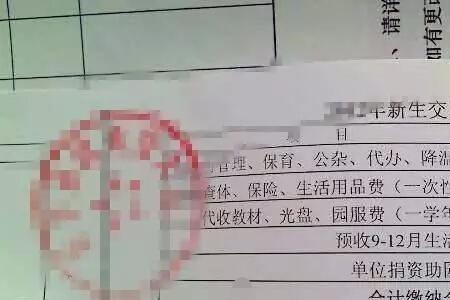 、请详
如有更改
年新生交
项目
管理、保育、公杂、代办、降温
体、保险、生活用品费（一次性
代收教材、光盘、园服费（一学年
预收9-12月生活
单位捐资助园
合计缴纳金